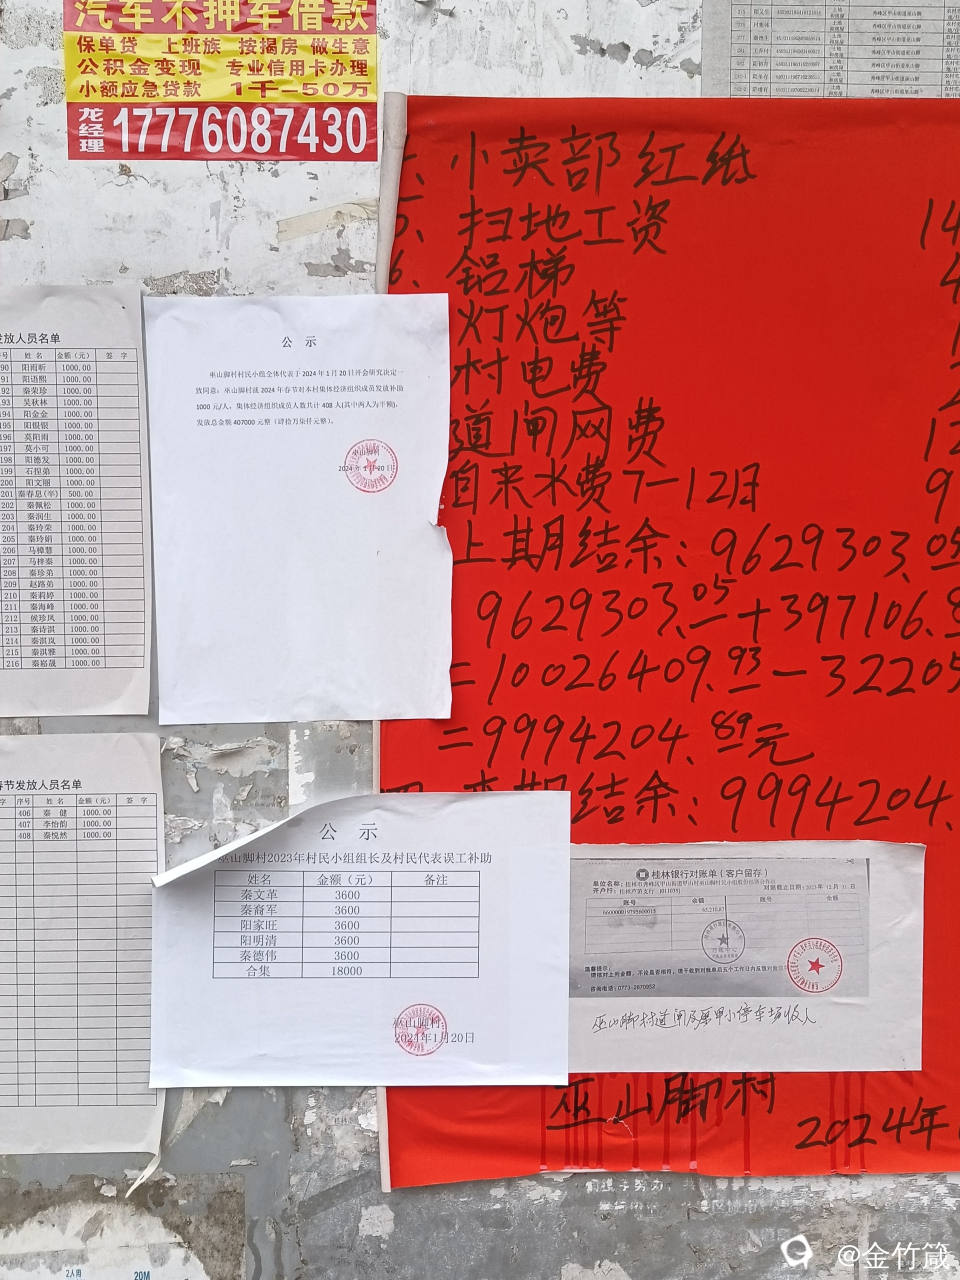 汽车不押车借款
保单贷 上班族 按揭房 做生意
公积金变现 专业信用卡办理
小额应急贷款 1千-50万
龙经理 17776087430
小卖部红纸
扫地工资 14
铝梯
灯炮等
村电费
道闸网费 12
自来水费7-12月 9
上期月结余：9629303.05
9629303.05+397106.8
=10026409.93-32205
=9994204.89元
本期结余：9994204.
巫山脚村
2024年
发放人员名单
号 姓名 金额（元） 签字
190 阳雨昕 1000.00
191 阳语熙 1000.00
192 秦荣珍 1000.00
193 吴秋林 1000.00
194 阳金金 1000.00
195 阳银银 1000.00
196 莫阳雨 1000.00
197 莫小可 1000.00
198 阳德发 1000.00
199 石捏弟 1000.00
200 阳文丽 1000.00
201 秦春息(半) 500.00
202 秦佩松 1000.00
203 秦润生 1000.00
204 秦玲荣 1000.00
205 秦玲娟 1000.00
206 马樟慧 1000.00
207 马梓秦 1000.00
208 秦珍弟 1000.00
209 赵路弟 1000.00
210 秦莉婷 1000.00
211 秦海峰 1000.00
212 候珍凤 1000.00
213 秦诗淇 1000.00
214 秦淇岚 1000.00
215 秦淇雅 1000.00
216 秦嵛晟 1000.00
公 示
巫山脚村村民小组全体代表于2024年1月20日开会研究决定一
致同意：巫山脚村就2024年春节对本村集体经济组织成员发放补助
1000元/人，集体经济组织成员人数共计408人(其中两人为半额)，
发放总金额407000元整（肆拾万柒仟元整）。
巫山脚村
2024年1月20日
春节发放人员名单
字 序号 姓名 金额（元） 签字
406 秦健 1000.00
407 李怡韵 1000.00
408 秦悦然 1000.00
公 示
巫山脚村2023年村民小组组长及村民代表误工补助
姓名 金额（元） 备注
秦文革 3600
秦裔军 3600
阳家旺 3600
阳明清 3600
秦德伟 3600
合集 18000
巫山脚村
2024年1月20日
桂林银行对账单（客户留存）
单位名称：
开户行：
对账截止日期：2023年12月31日
账号 余额 账号 余额
660000019795600015 65,210.87
温馨提示：
咨询电话：0773-2870952
巫山脚村道闸及原甲小停车场收入
2人用 20M
@金竹箴